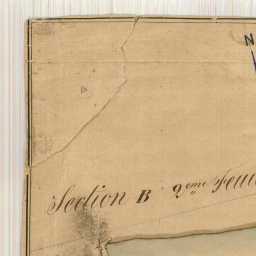 N
Section B 2eme Feui